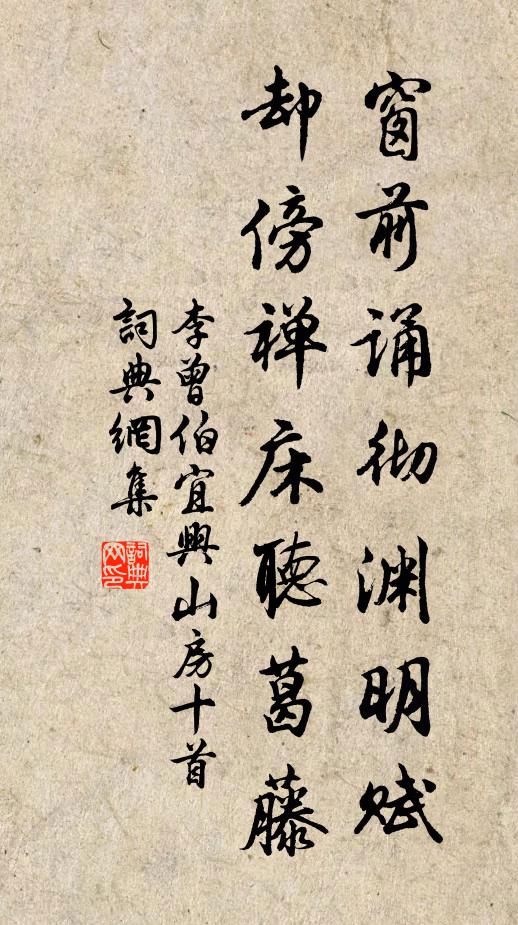 窗前诵彻渊明赋
却傍禅床聴葛藤
李曾伯宜興山房十首
詞典網集
詞典網印